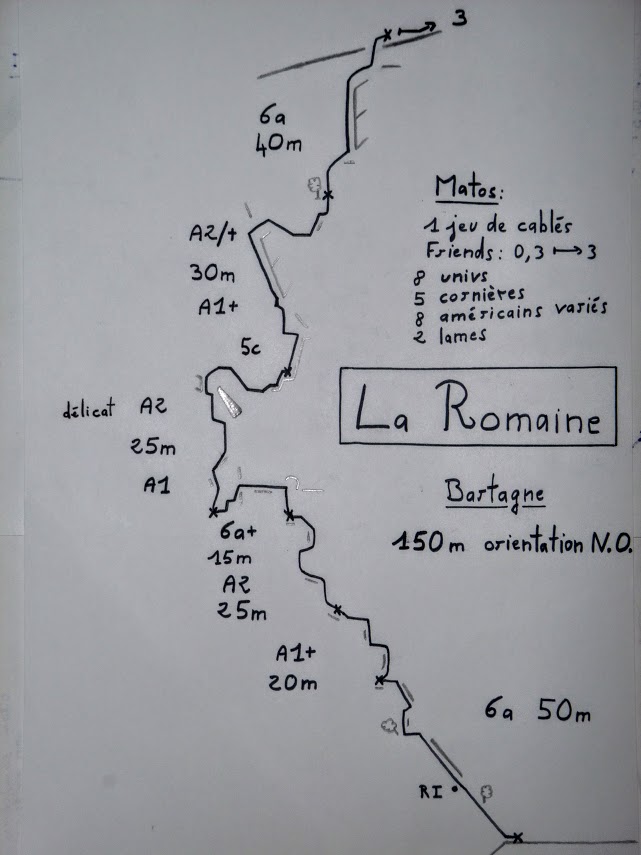 3
6a
40m
Matos:
1 jeu de cablés
Friends: 0,3 ↦ 3
8 univs
5 cornières
8 américains variés
2 lames
A2/+
30m
A1+
5c
La Romaine
délicat A2
25m
A1
Bartagne
150m orientation N.O.
6a+
15m
A2
25m
A1+
20m
6a 50m
RI